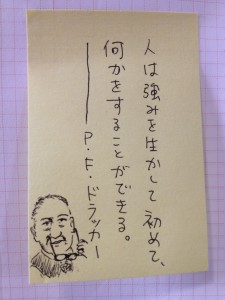 人は強みを生かして初めて、
何かをすることができる。
――P・F・ドラッカー